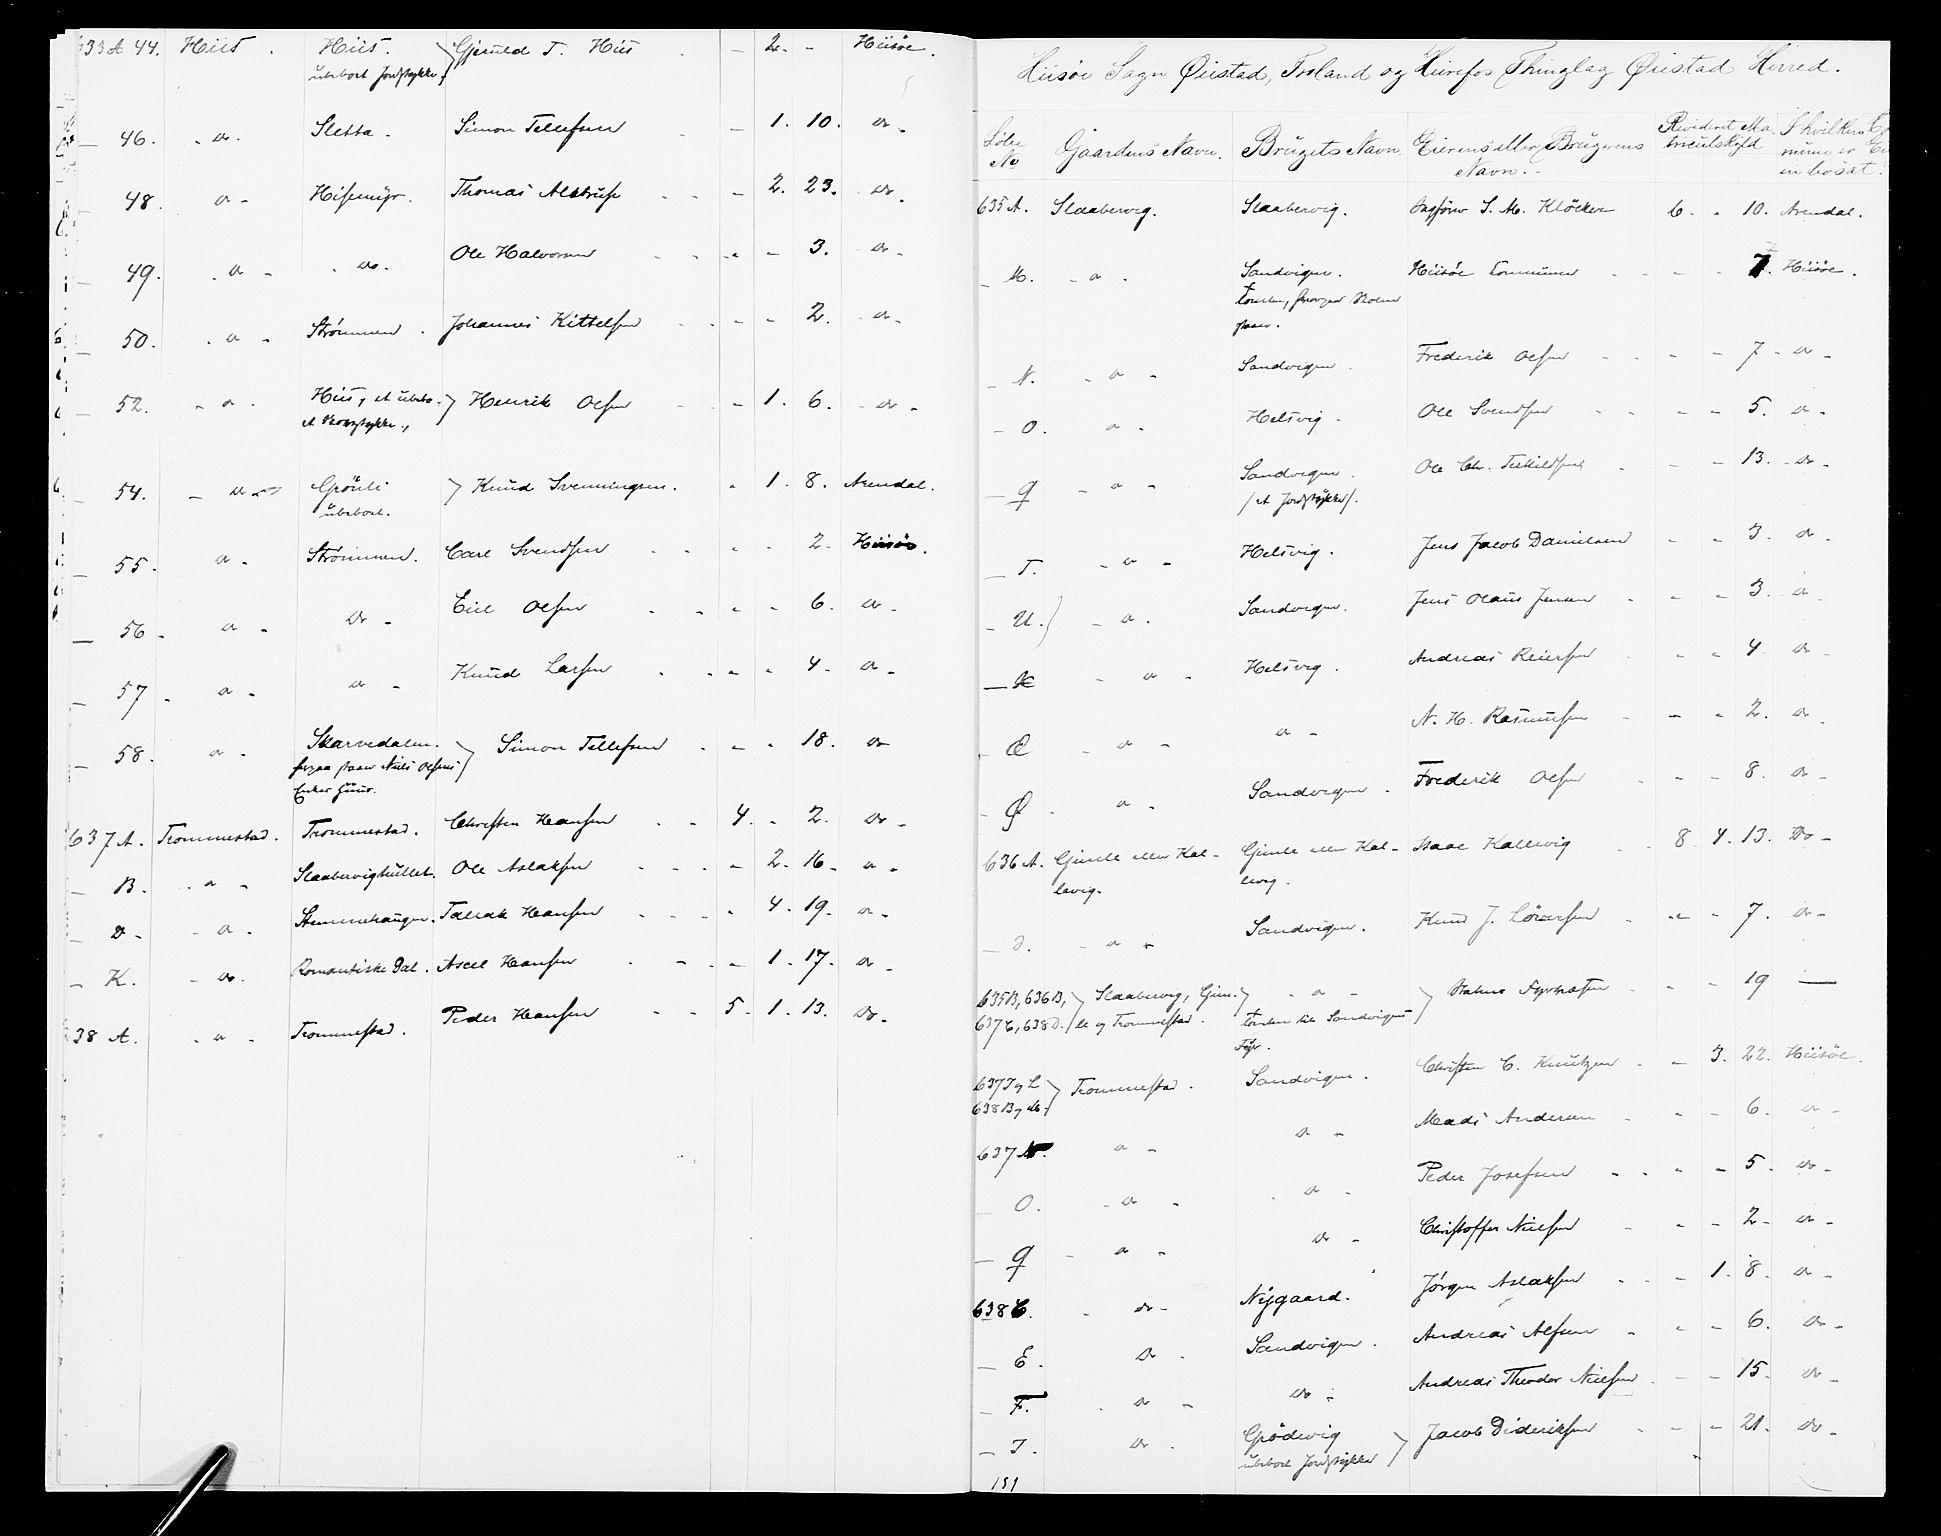 633 A 44. Hiis. Hiis. Gjeruld T. Hiis - 2. - Hiisøe.
ubeboet Jordstykke
- 46. - do. Sletta. Simon Tellefsen - 1. 10. do.
- 48. do - Hisemyr. Thomas Alstrup - 2. 23. do.
- 49. do - do. Ole Halvorsen - - 3. do -
- 50. do - Strømmen. Johannes Kittelsen - - 2. do -
- 52. - do. Hiis, et ubebo- Henrik Olsen - 1. 6. - do -
et Skovstykke.,
- 54. - do Grönli Knud Svenningsen. - 1. 8. Arendal.
ubeboet.
- 55. do - Strømmen. Carl Svendsen - - 2. Hiisøe.
- 56 - do - do - Olsen - - 6. do -
- 57 - do - do - Knud Larsen - - 4. do -
- 58. do - Skarvedalen. Simon Tellefsen - - 18. do
hvorpaa staaer Niels Olsens
Enkes Huus.
637 A. Trommestad. Trommestad. Christen Hansen 4. - 2. do -
- B. do - Slaabervighullet. Ole Aslaksen - 2. 16 - do -
- D - do. Stemmehaugen. Tallak Hansen - 4. 19. do -
- K. - do. Romantiske Dal. Axel Hansen - 1. 17. do -
638 A. do - Trommestad. Peder Hansen 5. 1. 13. do -
Hiisøe Sogn Øiestad, Froland og Hirefos Thinglag Øiestad Herred.
Løbe Gaardens Navn. Brugets Navn. Eierens eller Brugerens Revideret Ma- I hvilken Co
No Navn. - triculskyld mune er Ei
en bosat.
635 A. Slaabervig. Slaabervig. Sagfører S. M. Klöcker 6. - 10. Arendal.
- M. - do. Sandvigen. Hiisöe Commune - - 7. Hiisöe.
Tomten, hvorpaa Skolen
staaer.
- N. - do - Sandvigen. Frederik Olsen - - 7 - do -
- O. do. Helsvig. Ole Svendsen - - 5. do -
- Q - do - Sandvigen. Ole Chr. Terkildsen - - 13. - do -
/et Jordstykke/.
- T. - do - Helsvig. Jens Jacob Danielsen - - 3. do -
- U. - do. Sandvigen. Jens Olaus Jensen - - 3. do
- - do - Helsvig. Andreas Reiersen - - 4 do -
- Æ - do - do - N. H. Rasmussen - - 2. do -
- Ø. do - Sandvigen. Frederik Olsen - - 8. do -
636 A. Gimle eller Kal- Gimle eller Kal- Isaac Kallevig 8. 4. 13. Do -
levig. levig.
- D. - do - Sandvigen. Knud J. - - 7. do -
635 B, 636 B, Slaabervig, Gim- - do - Statens Fyrvæsen - - 19 —
637 C, 638 D. le og Trommestad. Tomten til Sandvigens
Fyr.
637 I og L Trommestad. Sandvigen. Christen C. Knutzen - 3. 22. Hiisöe.
638 B og M.
637 N. do - do - Mads Andersen - - 6. do -
- O. - do - do - Peder Josefsen - - 5. do -
- Q - do - do - Christoffer Nielsen - - 2 - do -
638 C. - do - Nygaard. Jørgen Aslaksen - 1. 8. do -
- E. do - Sandvigen. Andreas Alfsen - - 6. do -
- F. - do - do - Andreas Theodor Nielsen - - 15. do -
- I. do - Grödevig Jacob Dideriksen - - 21. do -
ubeboet Jordstykke
191